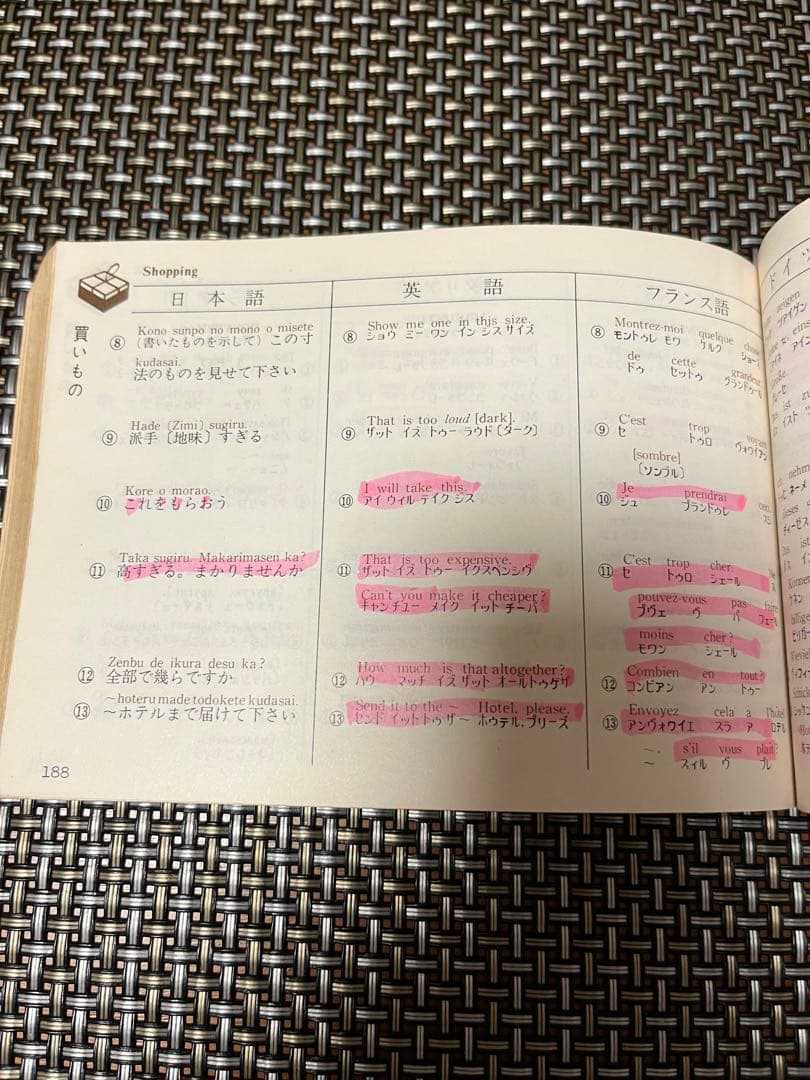 Shopping
買いもの
日本語
⑧ Kono sunpo no mono o misete
（書いたものを示して）この寸
kudasai.
法のものを見せて下さい
⑨ Hade〔Zimi〕sugiru.
派手〔地味〕すぎる
⑩ Kore o morao.
これをもらおう
⑪ Taka sugiru. Makarimasen ka?
高すぎる。まかりませんか
⑫ Zenbu de ikura desu ka?
全部で幾らですか
⑬ ～hoteru made todokete kudasai.
～ホテルまで届けて下さい
英語
⑧ Show me one in this size.
ショウ ミー ワン イン ジス サイズ
⑨ That is too loud [dark].
ザット イズ トゥー ラウド〔ダーク〕
⑩ I will take this.
アイ ウィル テイク ジス
⑪ That is too expensive.
ザット イズ トゥー イクスペンシヴ
Can't you make it cheaper?
キャンチュー メイク イット チーパ
⑫ How much is that altogether?
ハウ マッチ イズ ザット オールトゥゲザ
⑬ Send it to the ～ Hotel, please.
センド イットトゥザ～ ホウテル，プリーズ
フランス語
⑧ Montrez-moi quelque
モントゥレ モワ ケルク
de cette grandeur
ドゥ セットゥ グランドゥール
⑨ C'est trop
セ トゥロ ヴォワイアン
[sombre]
〔ソンブル〕
⑩ Je prendrai ceci.
ジュ プランドゥレ
⑪ C'est trop cher.
セ トゥロ シェール
pouvez-vous pas faire
プヴェ ヴ パ フェール
moins cher?
モワン シェール
⑫ Combien en tout?
コンビアン アン トゥー
⑬ Envoyez cela à l'hôtel
アンヴォワイエ スラ ア ロテル
～, s'il vous plaît?
～ スィル ヴ プレ
188